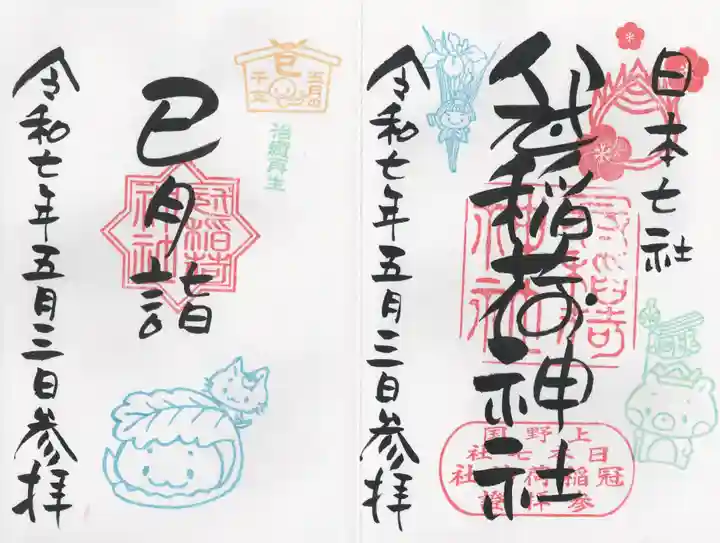 日本七社
冠稲荷神社
令和七年五月三日参拝
上野国
日本七社
冠稲荷神社
参拝證
冠稲荷
神社
巳月詣
令和七年五月三日参拝
冠稲荷
神社
巳
五月の
干支
治癒再生